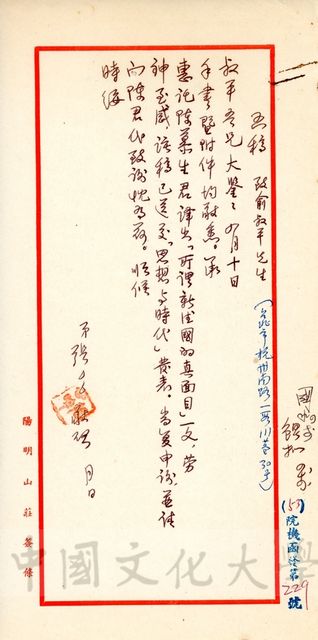 函稿 致俞叔平先生
(台北市杭州南路一段11巷30号)
叔平吾兄大鑒:九月十日
手書暨附件均敬悉。承
惠託陳慕生君譯出「所謂新德國的真面目」一文,勞
神至感,該稿已送交「思想与時代」發表。尚复申謝,並請
向陳君代致謝忱為荷。順候
時綏
弟張
月 日
陽明山莊箋條
(53)院機函洽第229號
中國文化大學